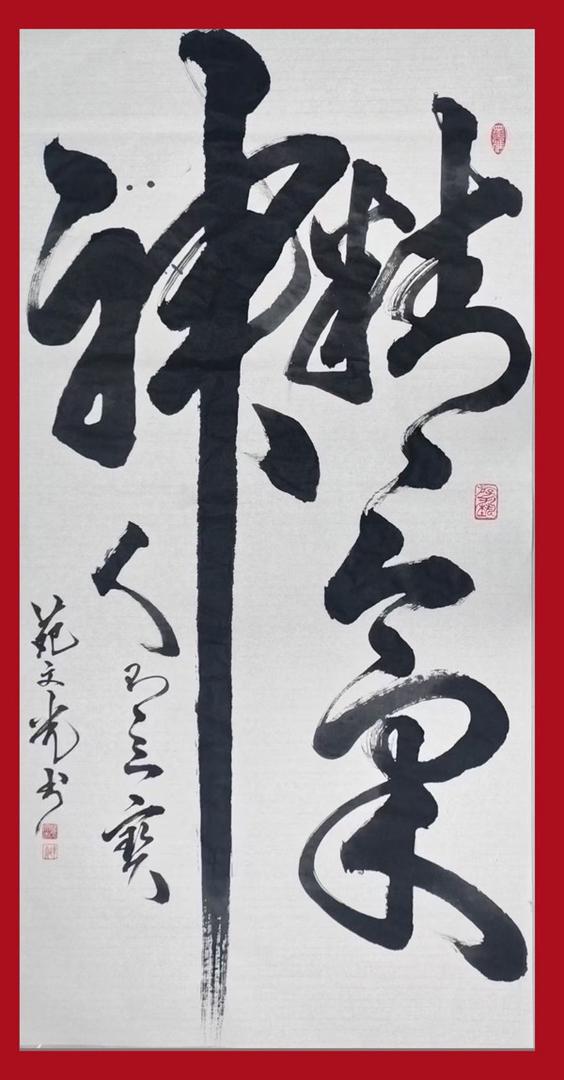 精氣
神
人之三寶
范文光书